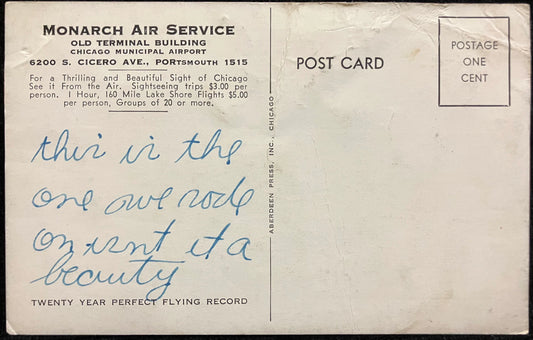 MONARCH AIR SERVICE
OLD TERMINAL BUILDING
CHICAGO MUNICIPAL AIRPORT
6200 S. CICERO AVE., PORTSMOUTH 1515
For a Thrilling and Beautiful Sight of Chicago
See it From the Air. Sightseeing trips $3.00 per
person. 1 Hour, 160 Mile Lake Shore Flights $5.00
per person, Groups of 20 or more.
this is the
one owe rode
on isnt it a
beauty
TWENTY YEAR PERFECT FLYING RECORD
ABERDEEN PRESS, INC., CHICAGO
POST CARD
POSTAGE
ONE
CENT